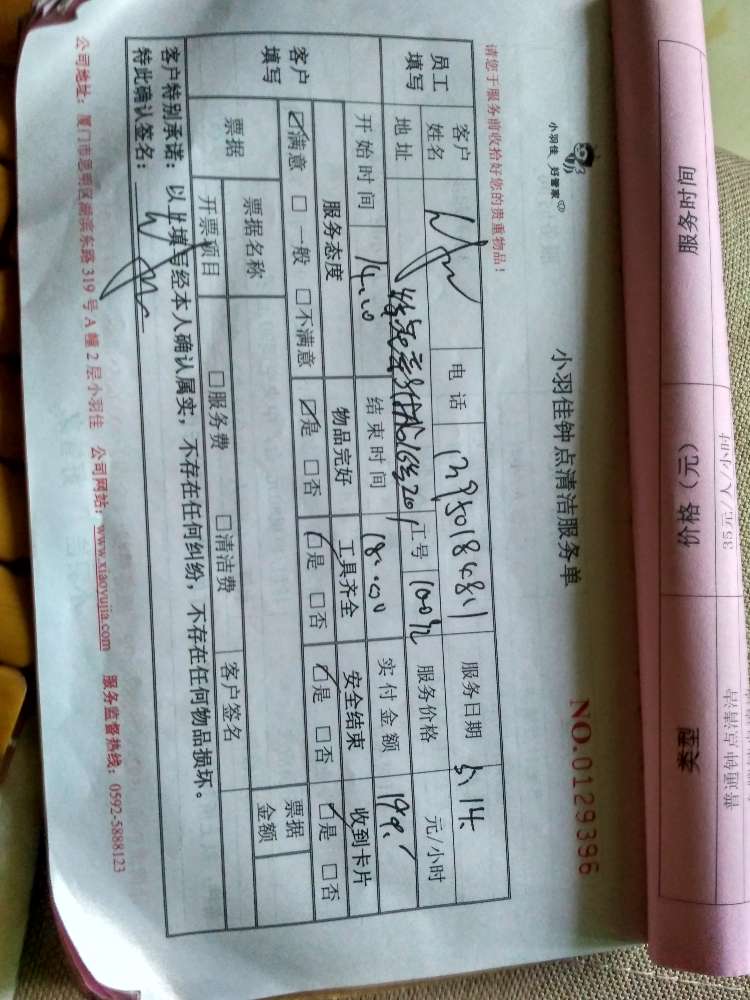 服务时间 价格（元） 类型
35元/人/小时
小羽佳 妇管家
小羽佳钟点清洁服务单
NO.0129396
请您于服务前收拾好您的贵重物品！
员工填写 客户姓名 电话 服务日期 5.14.
地址 工号 服务价格 元/小时
开始时间 14:00 结束时间 18:00 实付金额
客户填写 服务态度 物品完好 工具齐全 安全结束 收到卡片
☑满意 □一般 □不满意 ☑是 □否 ☑是 □否 ☑是 □否 ☑是 □否
票据 票据名称 客户签名 票据金额
开票项目 □服务费 □清洁费
客户特别承诺：以上填写经本人确认属实，不存在任何纠纷，不存在任何物品损坏。
特此确认签名：
公司地址：厦门市思明区湖滨东路319号A幢2层小羽佳 公司网站：www.xiaoyujia.com 服务监督热线：0592-5888123